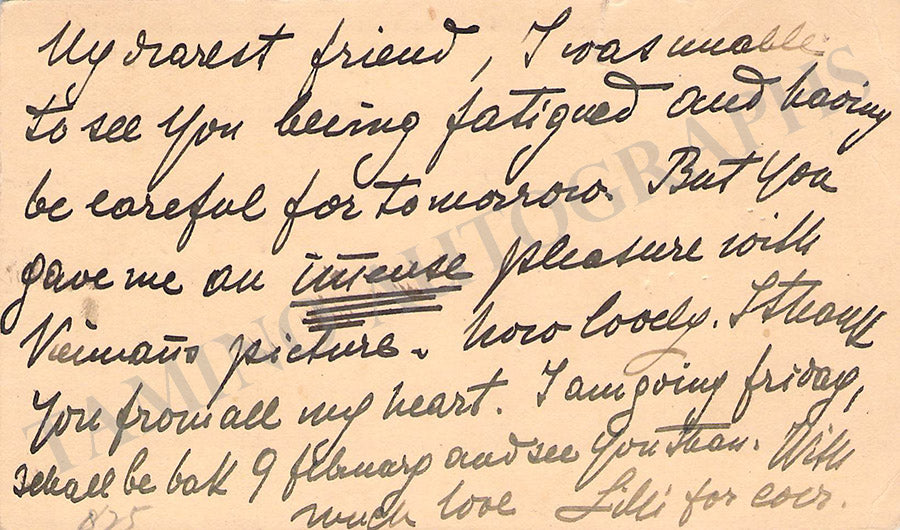 My dearest friend, I was unable
to see you being fatigued and having
be careful for tomorrow. But you
gave me an intense pleasure with
picture. how lovely. I thank
you from all my heart. I am going friday,
I shall be bak 9 february and see you than. With
much love Lilli for ever.
825
TAMINO AUTOGRAPHS